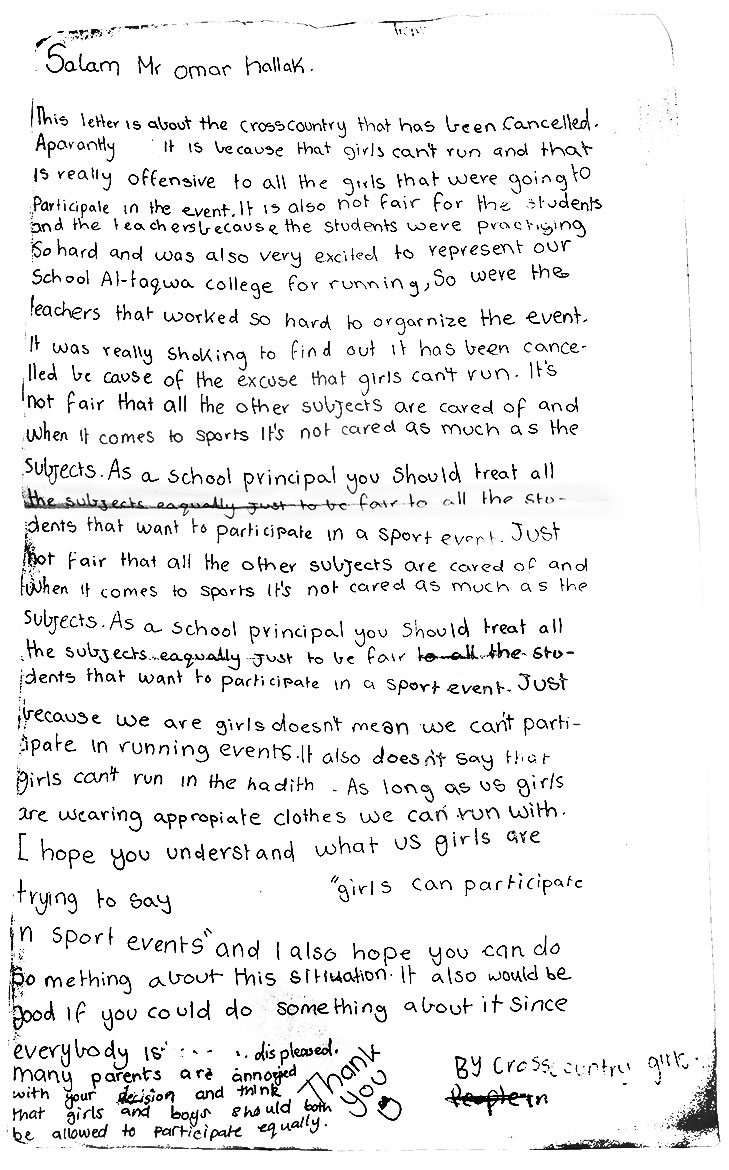 Salam Mr omar hallak.
This letter is about the crosscountry that has been Cancelled.
Aparantly It is because that girls can't run and that
is really offensive to all the girls that were going to
Participate in the event. It is also not fair for the students
and the teachers because the students were practising
So hard and was also very excited to represent our
School Al-taqwa college for running, So were the
teachers that worked so hard to orgarnize the event.
It was really shoking to find out it has been cance-
lled be cause of the excuse that girls can't run. It's
not fair that all the other subjects are cared of and
when it comes to sports It's not cared as much as the
Subjects. As a school principal you should treat all
the subjects eaqually just to be fair to all the stu-
dents that want to participate in a sport event. Just
not fair that all the other subjects are cared of and
when it comes to sports It's not cared as much as the
Subjects. As a school principal you should treat all
the subjects eaqually just to be fair to all the stu-
dents that want to participate in a sport event. Just
because we are girls doesn't mean we can't parti-
ipate in running events. It also doesn't say that
girls can't run in the hadith. As long as us girls
are wearing appropiate clothes we can run with.
I hope you understand what us girls are
trying to say "girls can participate
in sport events" and I also hope you can do
So mething about this sitiuation. It also would be
good if you could do something about it since
everybody is displeased.
many parents are annoyed
with your decision and think
that girls and boys should both
be allowed to participate equally.
Thank
you
BY Crosscountry girls.
People in